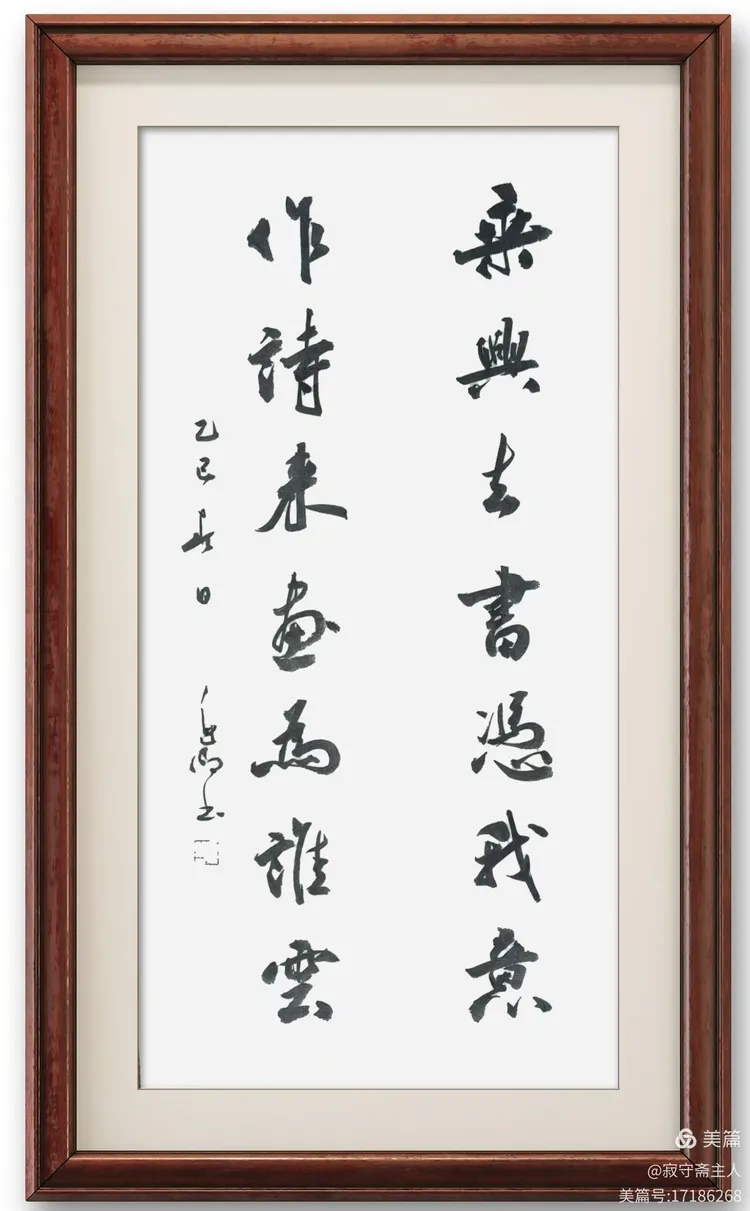 乘興去書憑我意
作詩来畫為誰雲
乙巳春日
美篇
@寂守斋主人
美篇号:17186268